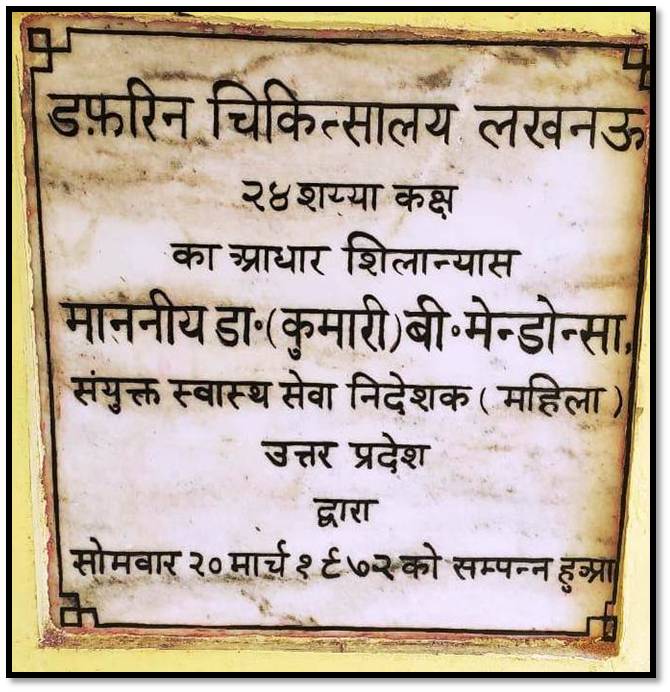 डफ़रिन चिकित्सालय लखनऊ
२४ शय्या कक्ष
का आधार शिलान्यास
माननीय डा॰ (कुमारी) बी॰ मेन्डोन्सा,
संयुक्त स्वास्थ सेवा निदेशक ( महिला )
उत्तर प्रदेश
द्वारा
सोमवार २० मार्च १९७२ को सम्पन्न हुआ